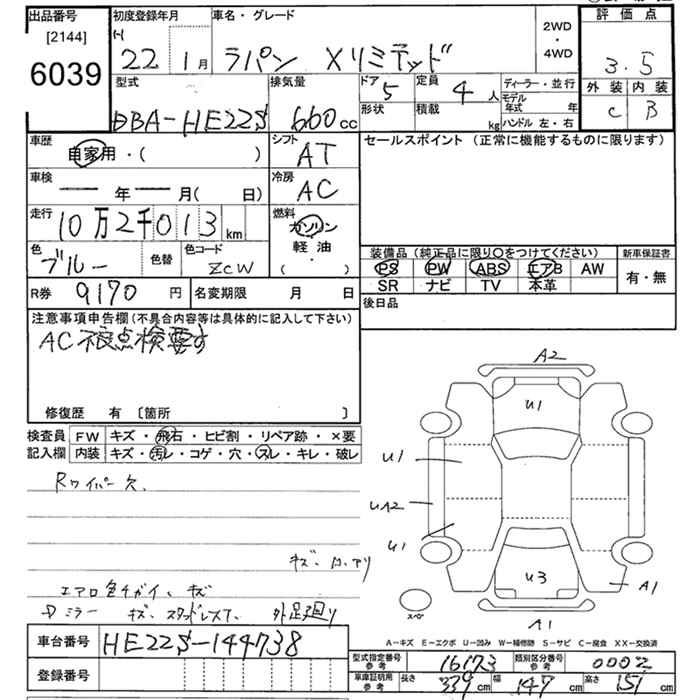 出品番号
[2144]
6039
初度登録年月
(-)
22 年 1月
車名・グレード
ラパン Xリミテッド
2WD
・
4WD
評価点
3.5
外装 内装
C B
型式
DBA-HE22S
排気量
660cc
ドア 5
形状
定員 4人
積載 kg
ディーラー・並行
モデル年式 年
ハンドル 左・右
車歴
自家用・( )
シフト
AT
セールスポイント (正常に機能するものに限ります)
車検
年 月( 日)
冷房
AC
走行
10万2千013km
燃料
ガソリン
・
軽油
・
( )
色
ブルー
色替
色コード
ZCW
装備品 (純正品に限り○をつけてください)
新車保証書
PS PW ABS エアB AW
SR ナビ TV 本革
有・無
R券 9170円
名変期限 月 日
後日品
注意事項申告欄(不具合内容等は具体的に記入して下さい)
AC不良点検要す
修復歴 有 〔箇所 〕
検査員記入欄
FW キズ・飛石・ヒビ割・リペア跡・×要
内装 キズ・汚レ・コゲ・穴・スレ・キレ・破レ
Rワイパー欠、
エアロ色チガイ、キズ
ミラー キズ、スタッドレスT、外足廻り
A2
U1
U1
UA2
U1
U3
A1
スペア
A1
A-キズ E-エクボ U-凹み W-補修跡 S-サビ C-腐食 XX-交換済
車台番号 HE22S-144738
登録番号
型式指定番号 参考 16173
類別区分番号 参考 0002
車庫証明用 参考 長さ 339cm 幅 147cm 高さ 151cm